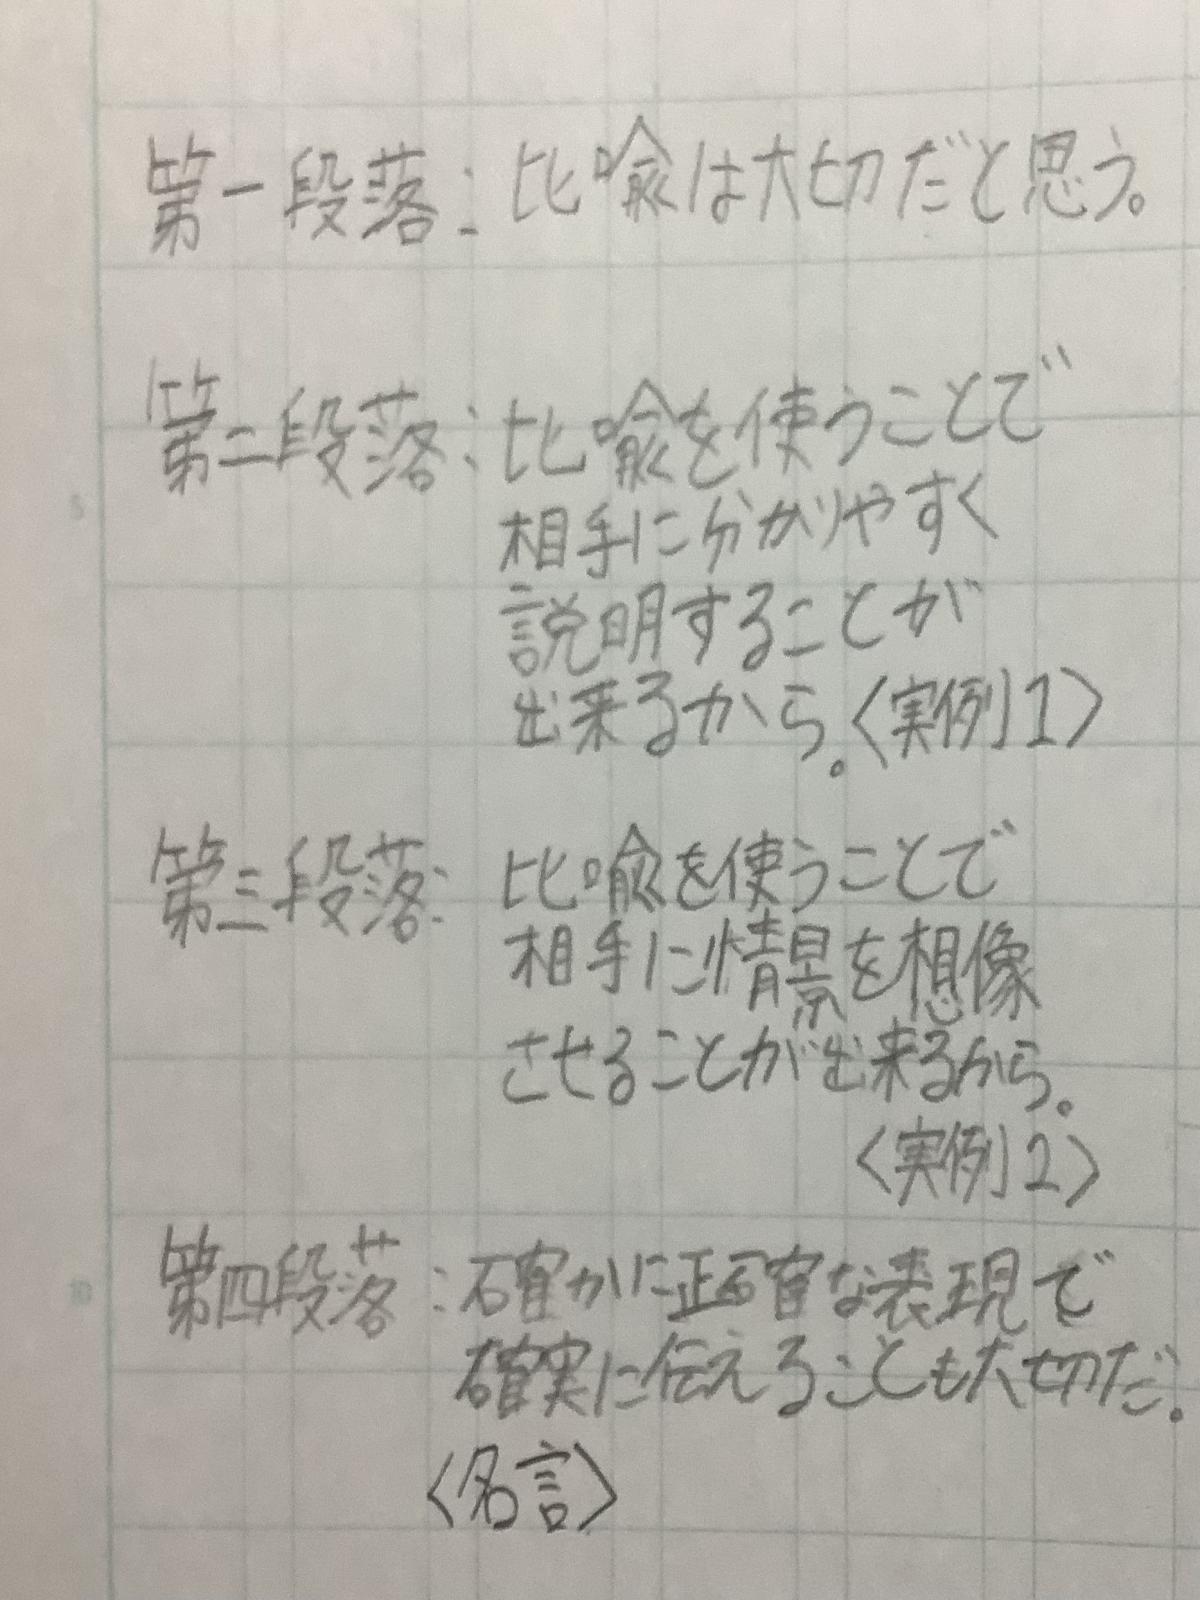 第一段落：比喩は大切だと思う。
第二段落：比喩を使うことで
相手に分かりやすく
説明することが
出来るから。〈実例1〉
第三段落：比喩を使うことで
相手に情景を想像
させることが出来るから。
〈実例2〉
第四段落：確かに正確な表現で
確実に伝えることも大切だ。
〈名言〉
5
10